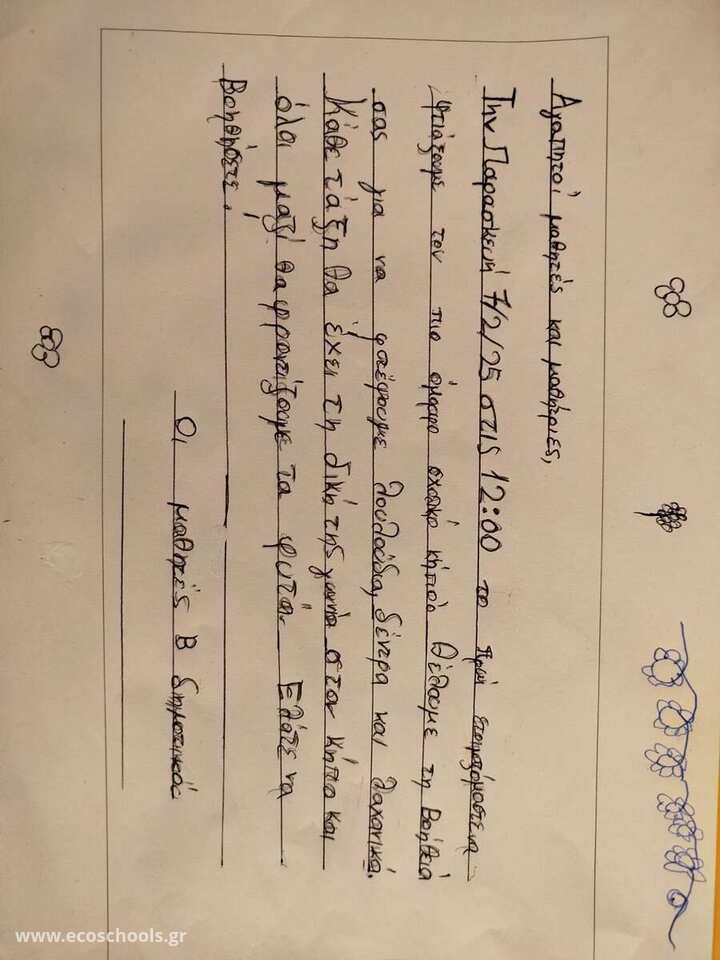 Αγαπητοί μαθητές και μαθήτριες,
Την Παρασκευή 7/2/25 στις 12:00 το πρωί ετοιμαζόμαστε να
φτιάξουμε τον πιο όμορφο σχολικό κήπο. Θέλουμε τη βοήθειά
σας για να φυτέψουμε λουλούδια, δέντρα και λαχανικά.
Κάθε τάξη θα έχει τη δική της γωνιά στον κήπο και
όλοι μαζί θα φροντίζουμε τα φυτά. Ελάτε να
βοηθήσετε.
Οι μαθητές Β δημοτικού
www.ecoschools.gr